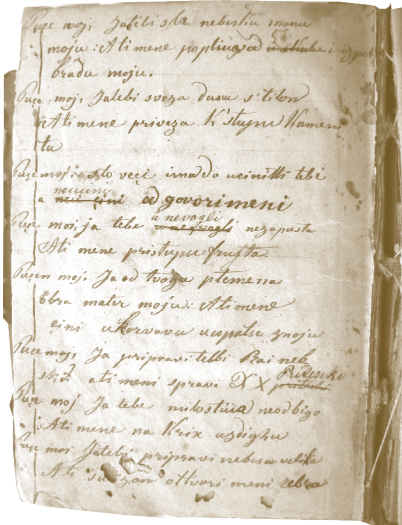 Puče moj, Jatebi skže nebesku mannu
moju: Ati mene popljuga od i izgub
bradu moju.
Puče moj, Jatebi sveza dussu s'tilon
Ati mene priveza K'stupu Kameni
tu
Puče moj: što veće imado uciniti tebi
a neucini odgovori meni
Puče moi, ja tebe u nevogli nezapusta
Ati mene pristupu frusta.
Pučen moj, Ja od tvoga plemena
obra mater moju: Ati mene
cini ukorvavu ucopatse znoju
Puče moj, Ja pripravi tebbi Rai neb
ski: ati meni spravi X X
Puče moj Ja tebe milostiva neodbigo
Ati mene na Krix uzdighu
Puče moi Jatebi pripravi nebesa velika
Ati otvori meni rebra